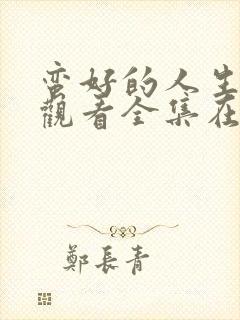 蛮好的人生
觀看全集在
鄭長青